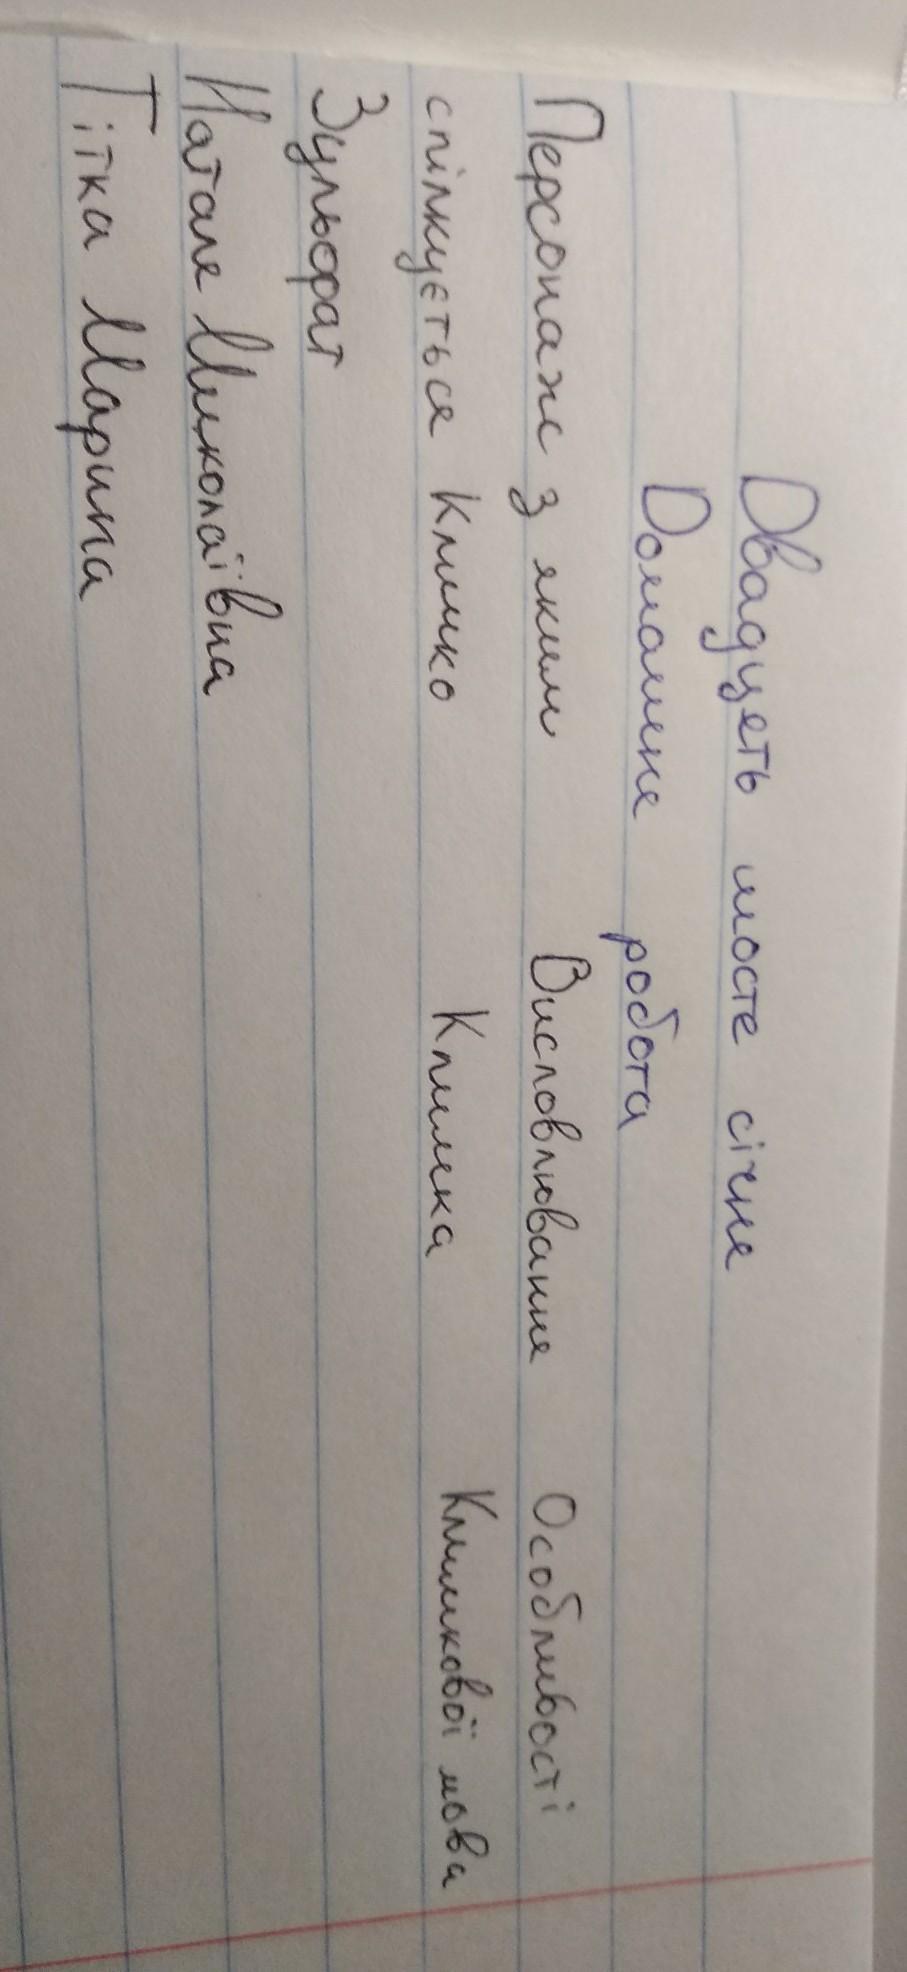 Двадцять шосте січня
Домашня робота
Персонаж з яким Висловлювання Особливості
спілкується Климко Климка Климкової мова
Зульфат
Наталя Миколаївна
Тітка Марина